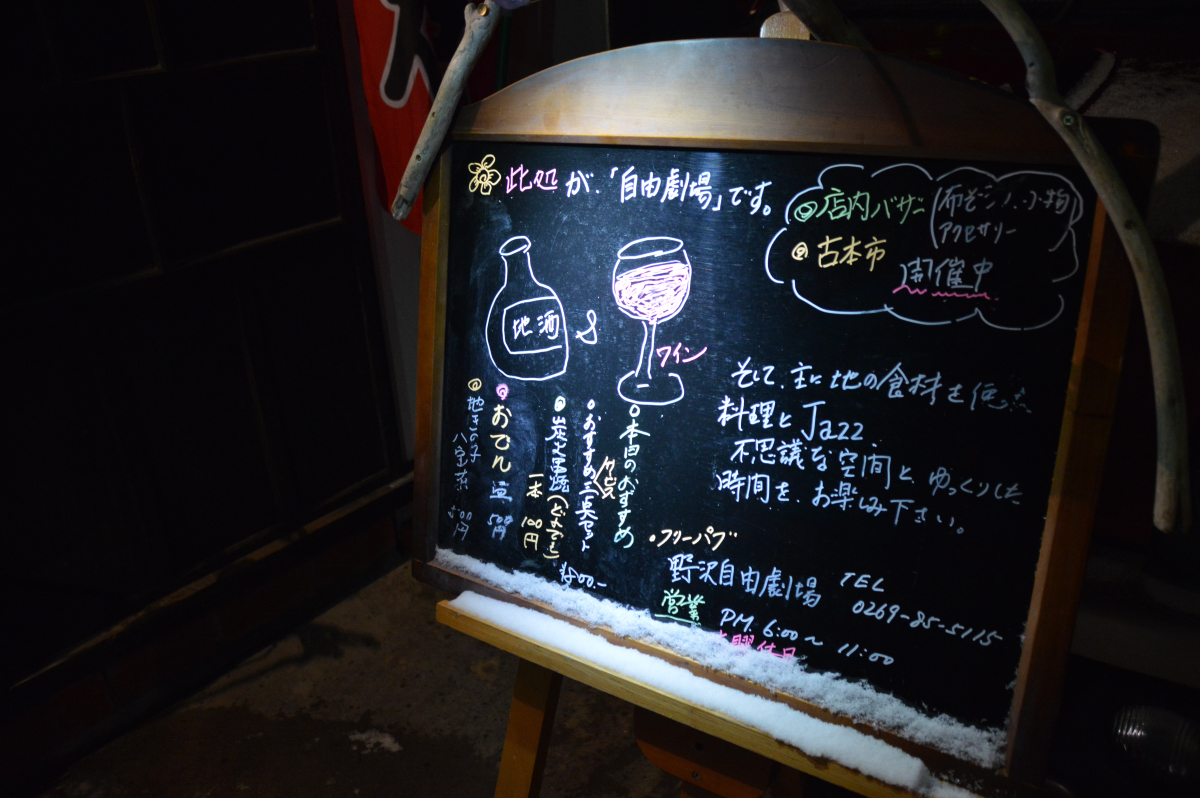 此処が、「自由劇場」です。
店内バザー
(布ぞうり、小物
アクセサリー
古本市
開催中
地酒
&
ワイン
そして、主に地の食材を使った
料理とJazz
不思議な空間と、ゆっくりした
時間を、お楽しみ下さい。
本日のおすすめ
おすすめ三点セット
¥800-
炭火串焼(どれでも)
一本 100円
おでん 皿 500円
地きの子
八宝菜 500円
・フリーパブ
野沢自由劇場
TEL
0269-85-5115
営業
PM. 6:00~11:00
曜休日